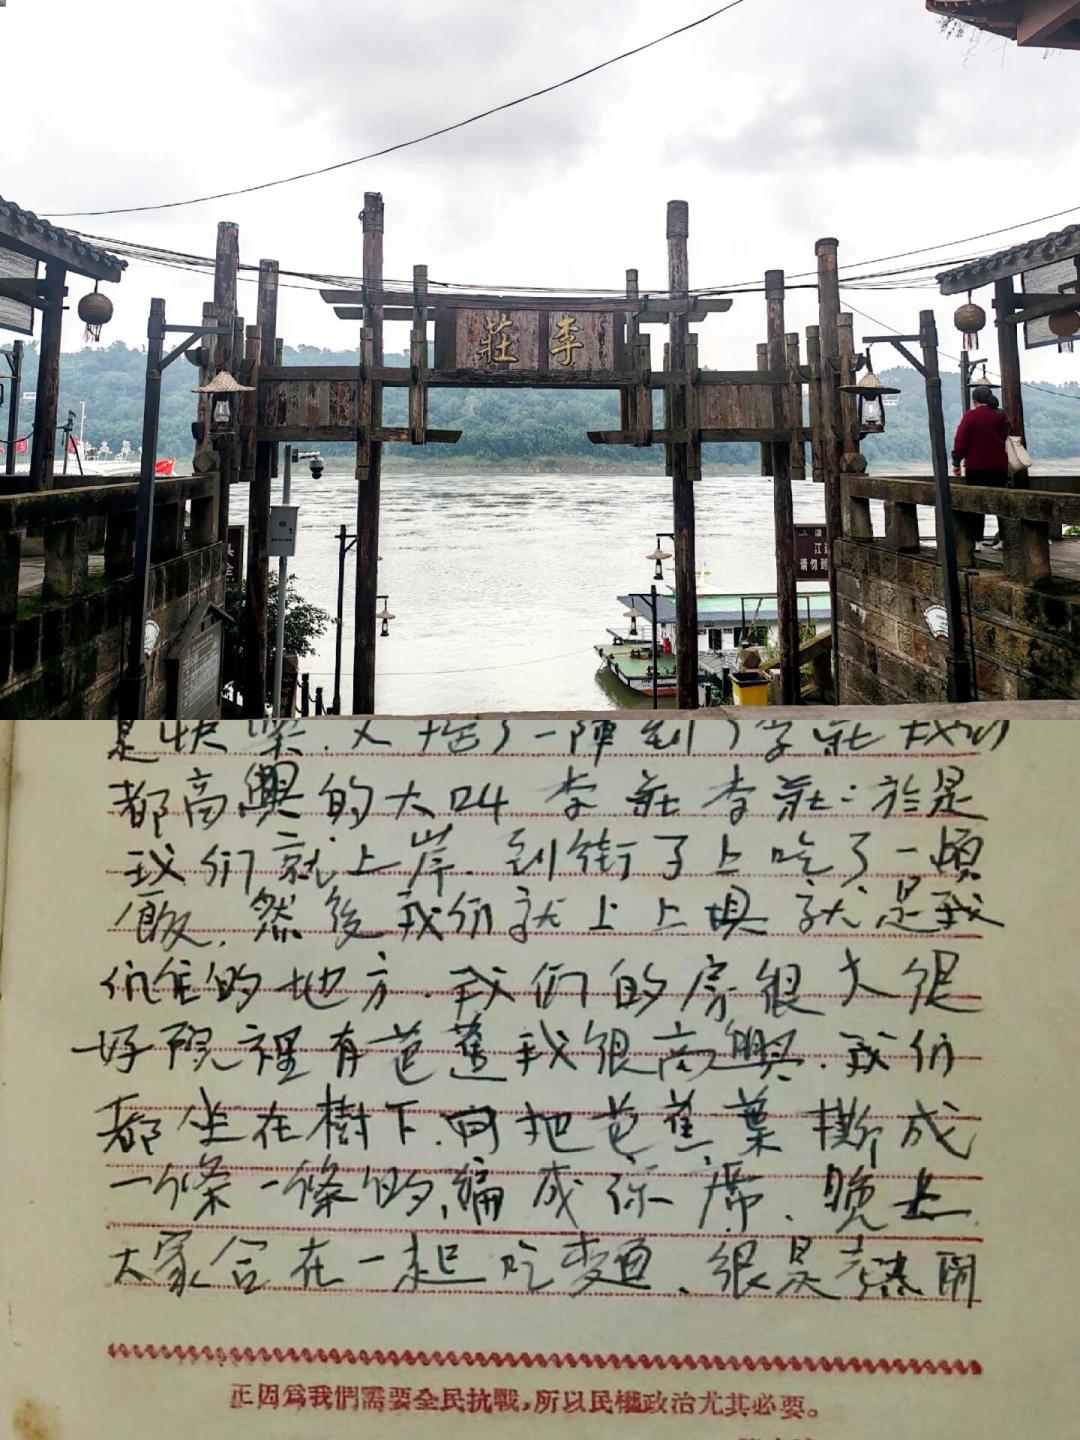 李莊
江
请勿到
是快樂.又搭了一陣到了李莊我们
都高興的大叫李莊李莊:於是
我们就上岸.到街子上吃了一頓
飯.然後我们就上上壩就是我
们住的地方.我们的房很大很
好院裡有芭蕉我很高興.我们
都坐在樹下.把芭蕉葉撕成
一條一條的,編成席、晚上
大家合在一起吃麵、很是熱鬧
正因爲我們需要全民抗戰,所以民權政治尤其必要。